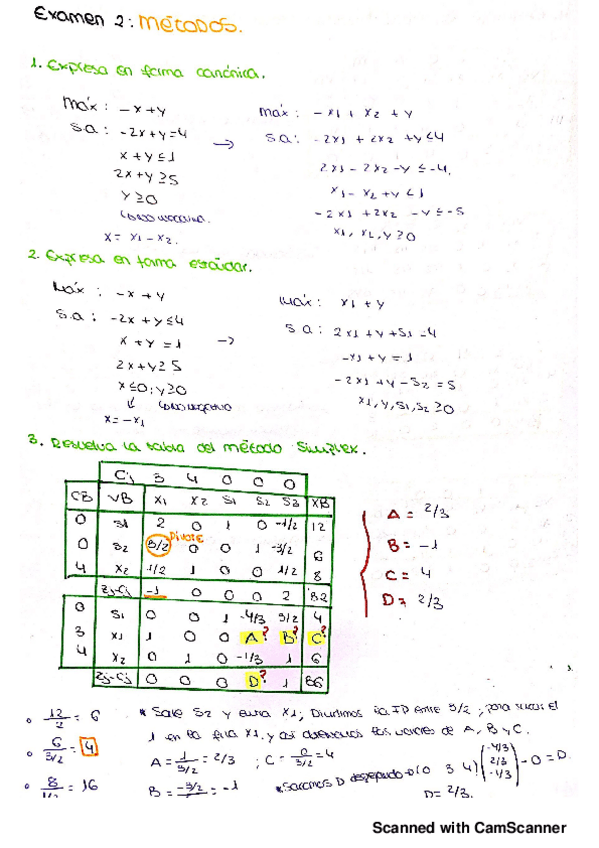 Examen 2: Métodos.
1. Expresa en forma canónica.
Máx: -x+y
s.a: -2x+y=4
x+y≤1
2x+y≥5
y≥0
x= x1-x2.
→
máx: -x1+x2+y
s.a: -2x1+2x2+y≤4
2x1-2x2-y≤-4.
x1-x2+y≤1
-2x1+2x2-y≤-5
x1, x2, y≥0
2. Expresa en forma estándar.
Máx: -x+y
s.a: -2x+y≤4
x+y=1
2x+y≥5
x≤0; y≥0
x=-x1
→
máx: x1+y
s.a: 2x1+y+S1=4
-x1+y=1
-2x1+y-S2=5
x1, y, S1, S2≥0
3. Resuelva la tabla del método Simplex.
Cj 3 4 0 0 0
CB VB X1 X2 S1 S2 S3 XB
0 S1 2 0 1 0 -1/2 12
0 S2 3/2 0 0 1 -3/2 6
Pivote
4 X2 1/2 1 0 0 1/2 8
Zj-Cj -1 0 0 0 2 82
0 S1 0 0 1 -4/3 3/2 4
3 X1 1 0 0 A? B? C?
4 X2 0 1 0 -1/3 1 6
Zj-Cj 0 0 0 D? 1 86
A= 2/3
B= -1
C= 4
D= 2/3
12/2 = 6
6/3/2 = 4
8/1/2 = 16
* Sale S2 y entra X1; Dividimos la FP entre 3/2; para sacar el
1 en la fila X1, y así obtenemos los valores de A, B y C.
A= 1/3/2 = 2/3 ; C= 6/3/2 = 4
B= -3/2/3/2 = -1
* Sacamos D despejando → (0 3 4) (-4/3 2/3 -1/3) - 0 = D.
D= 2/3.
Scanned with CamScanner